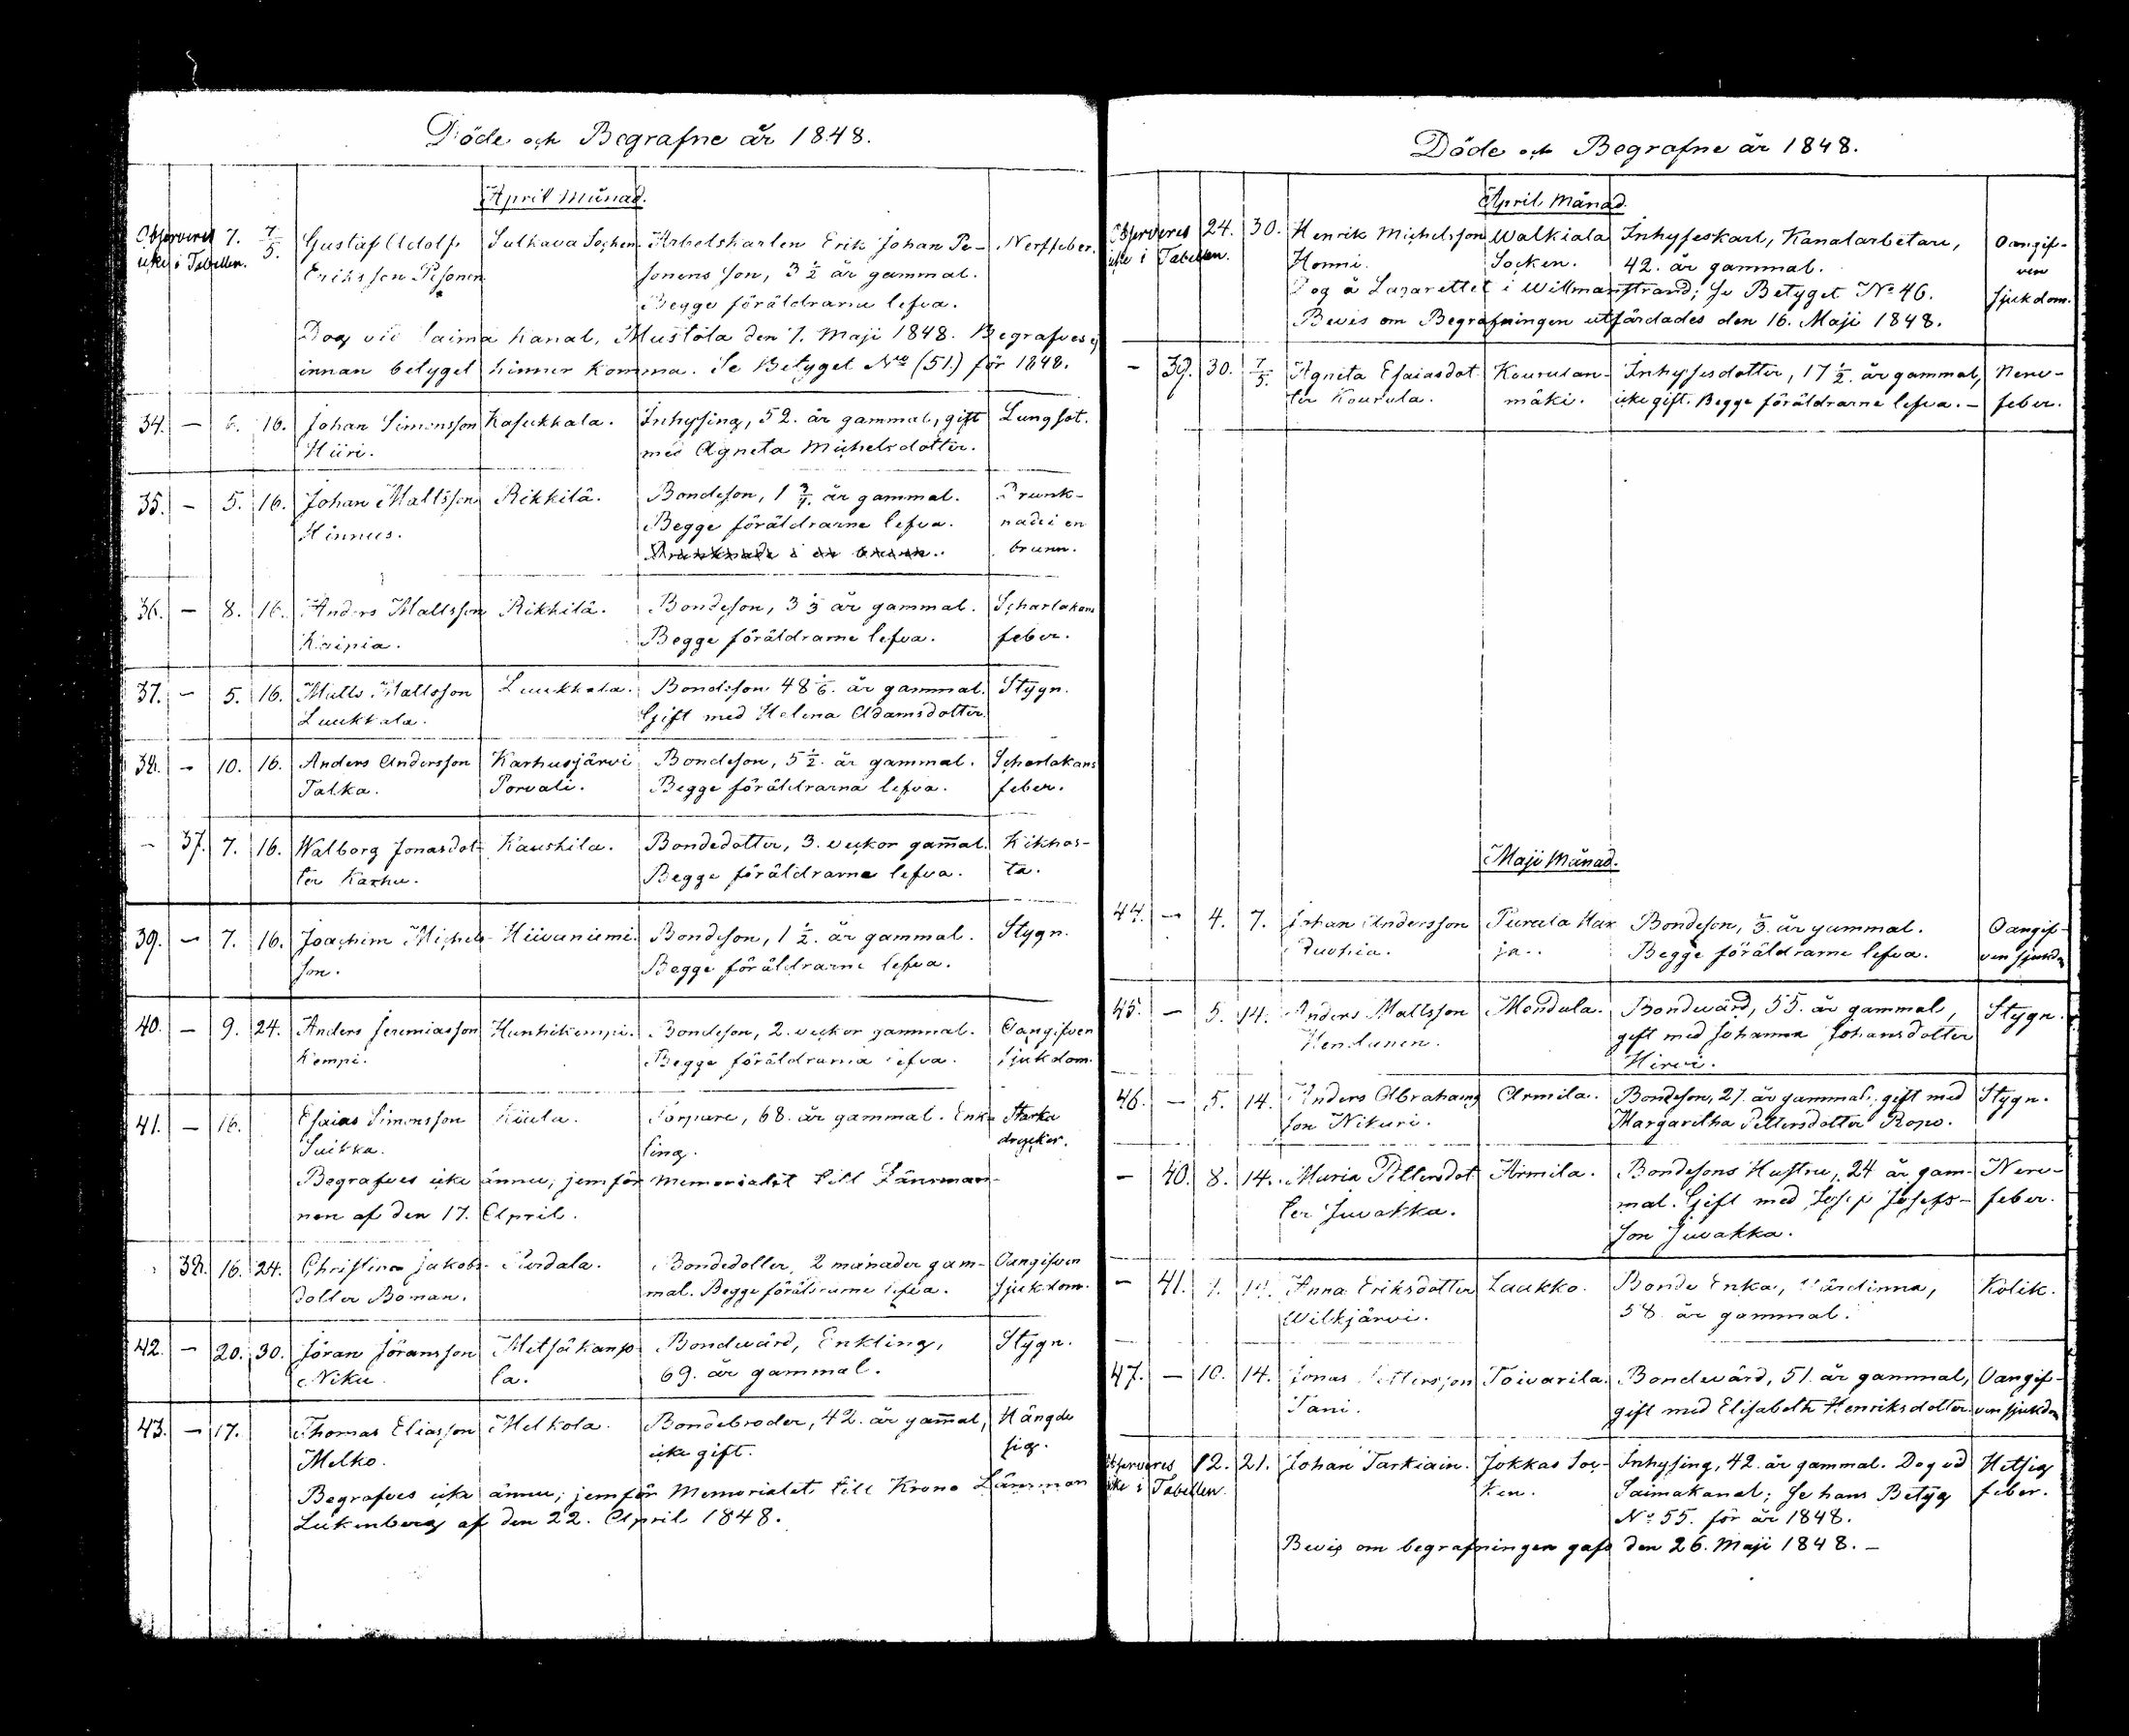 Döde och Begrafne år 1848.
April Månad.
Observeras 7. 7/5. Gustaf Adolf Sulkava Socken. Arbetskarlen Erik Johan Pe- Nerffeber.
icke i Tabellen. Eriksson Pesonen sonens son, 3 1/2 år gammal.
Begge föräldrarne lefva.
Dog vid Saima Kanal, Mustola den 7. Maji 1848. Begrafves ej
innan betyget hinner komma. Se Betyget No (51.) för 1848.
34. — 6. 16. Johan Simonsson Kasukkala. Inhysing, 52. år gammal, gift Lungsot.
Hiiri. med Agneta Michelsdotter.
35. — 5. 16. Johan Mattsson Rikkilä. Bondeson, 1 3/4. år gammal. Drunk-
Hinnus. Begge föräldrarne lefva. nade i en
Drunknade i en brunn. brunn.
36. — 8. 16. Anders Mattsson Rikkilä. Bondeson, 3 1/3 år gammal. Scharlakans
Kaipia. Begge föräldrarne lefva. feber.
37. — 5. 16. Matts Mattsson Luukkala. Bondeson 48 1/6. år gammal. Stygn.
Luukkala. Gift med Helena Adamsdotter.
38. — 10. 16. Anders Andersson Karhusjärvi Bondeson, 5 1/2. år gammal. Scharlakans
Talka. Porvali. Begge föräldrarna lefva. feber.
— 37. 7. 16. Walborg Jonasdot- Kaushila. Bondedotter, 3. veckor gam̄al. Kikhos-
ter Karhu. Begge föräldrarne lefva. ta.
39. — 7. 16. Joachim Michels- Hiivaniemi. Bondeson, 1 1/2. år gammal. Stygn.
son. Begge föräldrarne lefva.
40. — 9. 24. Anders Jeremiasson Hunhikempi. Bondeson, 2. veckor gammal. Oangifven
Kempi. Begge föräldrarna lefva. sjukdom.
41. — 16. Esaias Simonsson Kiiela. Torpare, 68. år gammal. Enk- Starka
Suikka. ling. drycker.
Begrafves icke ännu; jemför memorialet till Länsman-
nen af den 17. April.
38. 16. 24. Christina Jakobs- Purdala. Bondedotter, 2 månader gam- Oangifven
dotter Boman. mal. Begge föräldrarne lefva. sjukdom.
42. — 20. 30. Jöran Jöransson Metsäkanso- Bondevärd, Enkling, Stygn.
Niku. la. 69. år gammal.
43. — 17. Thomas Eliasson Melkola. Bondebroder, 42. år gam̄al, Hängde
Melko. icke gift. sig.
Begrafves icke ännu; jemför Memorialet till Krono Länsman
Lukenberg af den 22. April 1848.
Döde och Begrafne år 1848.
April Månad.
Observeras 24. 30. Henrik Michelsson Walkiala Inhyseskarl, Kanalarbetare, Oangif-
icke i Tabellen. Honni. Socken. 42. år gammal. ven
Dog å Lazarettet i Willmanstrand; Se Betyget No 46. sjukdom.
Bevis om Begrafningen utfärdades den 16. Maji 1848.
— 39. 30. 7/5. Agneta Esaiasdot- Kourulan- Inhysesdotter, 17 1/2. år gammal, Nerv-
ter Kourula. mäki. icke gift. Begge föräldrarne lefva. — feber.
Maji Månad.
44. — 4. 7. Johan Andersson Purala Har- Bondeson, år gammal. Oangif-
ja. Begge föräldrarne lefva. ven sjukdom
45. — 5. 14. Anders Mattsson Mondula. Bondevärd, 55. år gammal, Stygn.
Hendunen. gift med Johanna Johansdotter
Hirvi.
46. — 5. 14. Anders Abrahams- Armila. Bondeson, 27. år gammal, gift med Stygn.
son Nikuri. Margaretha Pettersdotter Ropo.
— 40. 8. 14. Maria Pettersdot- Armila. Bondesons Hustru, 24 år gam- Nerv-
ter Juvakka. mal. Gift med Josep Josefs- feber.
son Juvakka.
— 41. 7. 14. Anna Eriksdotter Laukko. Bonde Enka, Värdinna, Kolik.
Wilkjärvi. 58 år gammal.
47. — 10. 14. Jonas Pettersson Toivarila. Bondevärd, 51. år gammal, Oangif-
Tani. gift med Elisabeth Henriksdotter. ven sjukdom
Observeras 12. 21. Johan Tarkiain. Jokkas Soc- Inhysing, 42. år gammal. Dog vid Hetsig
icke i Tabellen. ken. Saimakanal; Se hans Betyg feber.
No 55. för år 1848.
Bevis om begrafningen gafs den 26. Maji 1848. —